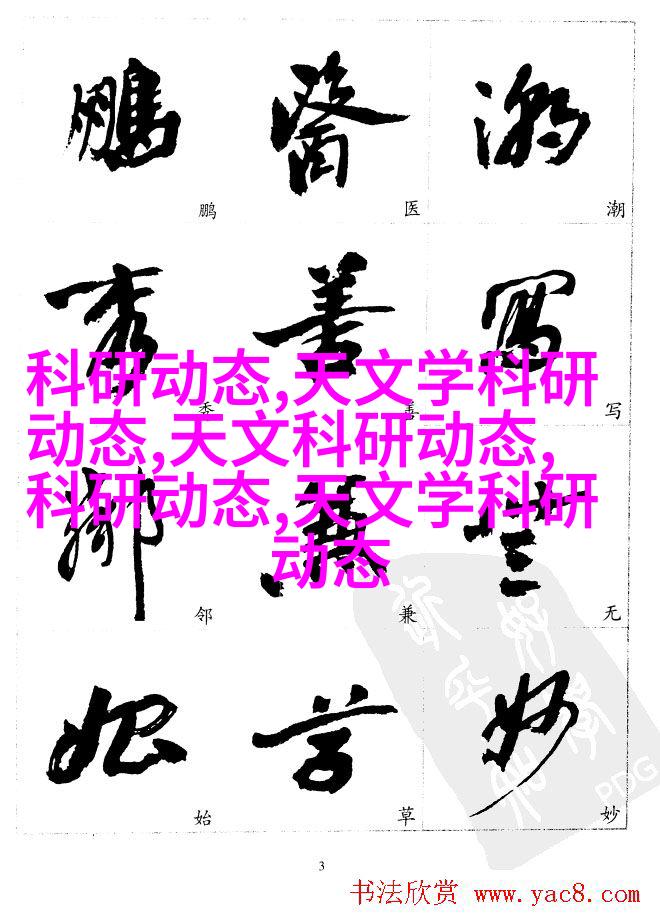 鹏 医 潮
秀 善 写
科研动态,天文学科研
动态,天文科研动态,
科研动态,天文学科研
动态
邻 兼 无
始 草 妙
3
PDG
书法欣赏 www.yac8.com